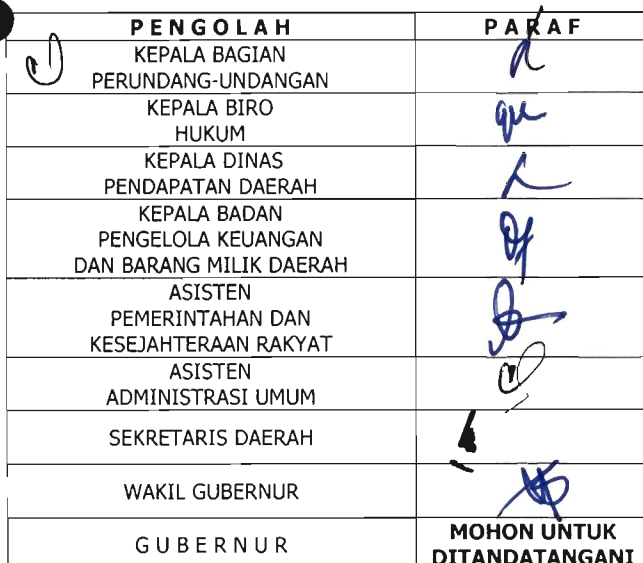 PENGOLAH PARAF
KEPALA BAGIAN
PERUNDANG-UNDANGAN
KEPALA BIRO
HUKUM
KEPALA DINAS
PENDAPATAN DAERAH
KEPALA BADAN
PENGELOLA KEUANGAN
DAN BARANG MILIK DAERAH
ASISTEN
PEMERINTAHAN DAN
KESEJAHTERAAN RAKYAT
ASISTEN
ADMINISTRASI UMUM
SEKRETARIS DAERAH
WAKIL GUBERNUR
GUBERNUR
MOHON UNTUK
DITANDATANGANI